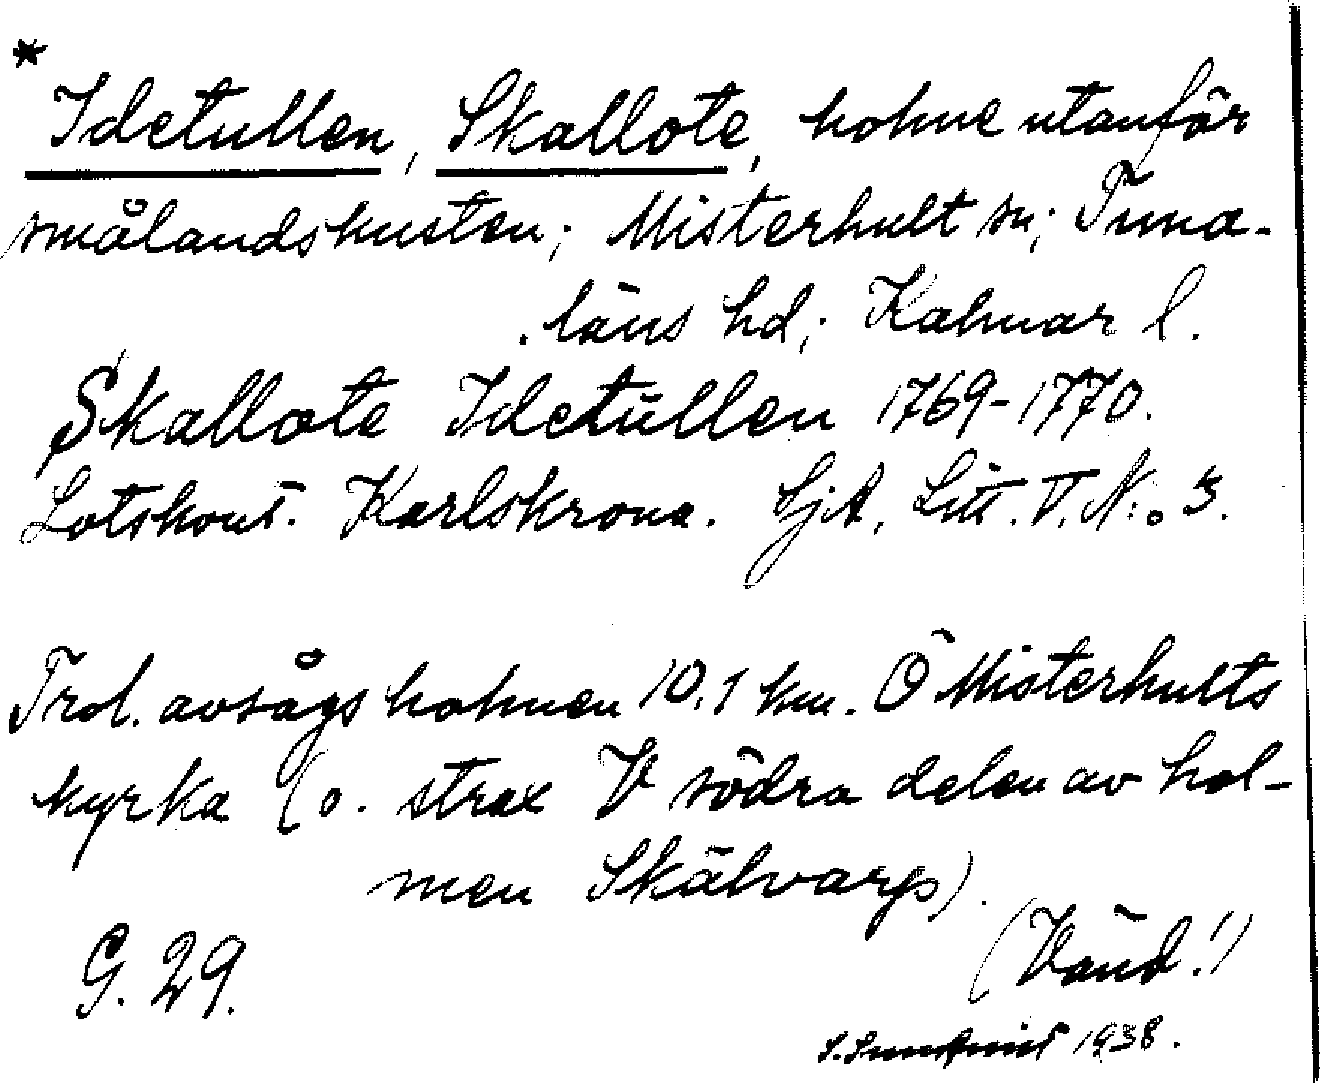 *
Idetullen, Skallote, holme utanför
smålandskusten; Misterhult sn; Tuna-
läns hd; Kalmar l.
Skallote Idetullen 1769-1770.
Lotskont. Karlskrona. SjA, Litt. T. N:o 3.
Trol. avsågs holmen 10,1 km. Ö Misterhults
kyrka (o. strax V södra delen av hol-
men Skälvarps).
(Vänd!)
G. 29.
S. 1938.